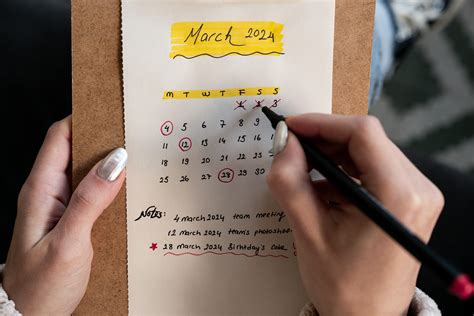 March 2024
M T W T F S S
1 2 3
4 5 6 7 8 9
11 12 13 14 15 16
18 19 20 21 22
25 26 27 28 29
Notes: 4 march 2024 team meeting
12 march 2024 team's
28 march 2024 Birthday's cake